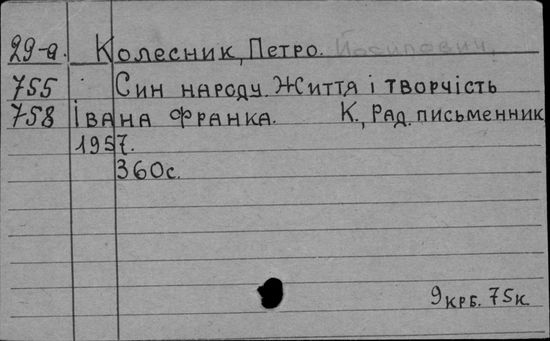 29-а. Колесник, Петро. Йосипович,
755 Син народу. Життя і творчість
758 Івана Франка. К., Рад. письменник
1957.
360с.
9 крб. 75к.